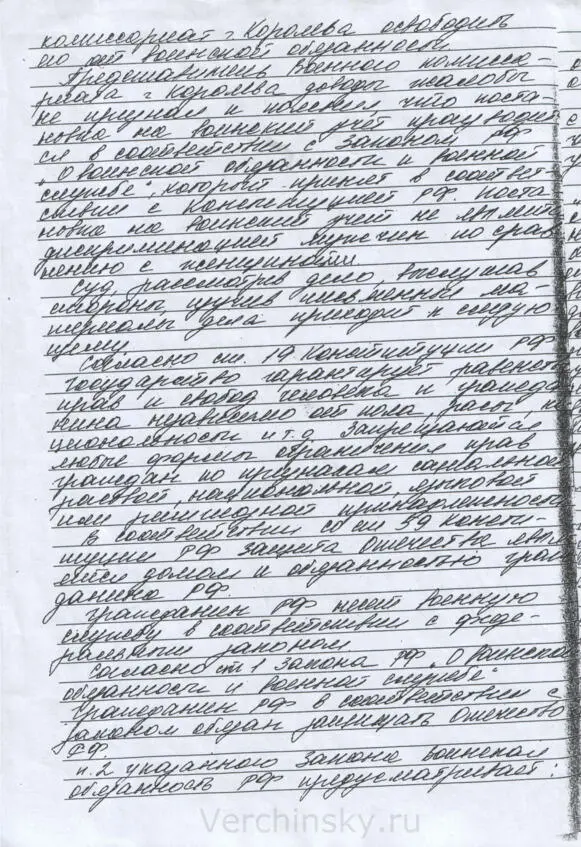 комиссариат г. Королева освободить
его от воинской обязанности.
Представитель Военного комисса-
риата г. Королева доводы жалобы
не признал и пояснил что поста-
новка на воинский учёт производит
ся в соответствии с Законом РФ
"О воинской обязанности и военной
службе", который принят в соответ-
ствии с Конституцией РФ. Поста
новка на воинский учет не является
дискриминацией мужчин по срав
нению с женщинами.
Суд, рассмотрев дело, выслушав
стороны, изучив письменные ма-
териалы дела приходит к следую
щему
Согласно ст. 19 Конституции РФ
государство гарантирует равенст
прав и свобод человека и гражда
нина независимо от пола, расы, на
циональности и т.д. Запрещаются
любые формы ограничения прав
граждан по признакам социальной
расовой, национальной, языковой
или религиозной принадлежности
В соответствии со ст 59 Консти-
туции РФ защита Отечества явля
ется долгом и обязанностью граж
данина РФ.
Гражданин РФ несет военную
службу в соответствии с феде-
ральным законом.
Согласно ст 1 Закона РФ "О воинской
обязанности и военной службе"
Гражданин РФ в соответствии с
законом обязан защищать Отечество
РФ.
п. 2 указанного Закона воинская
обязанность РФ предусматривает:
Verchinsky.ru